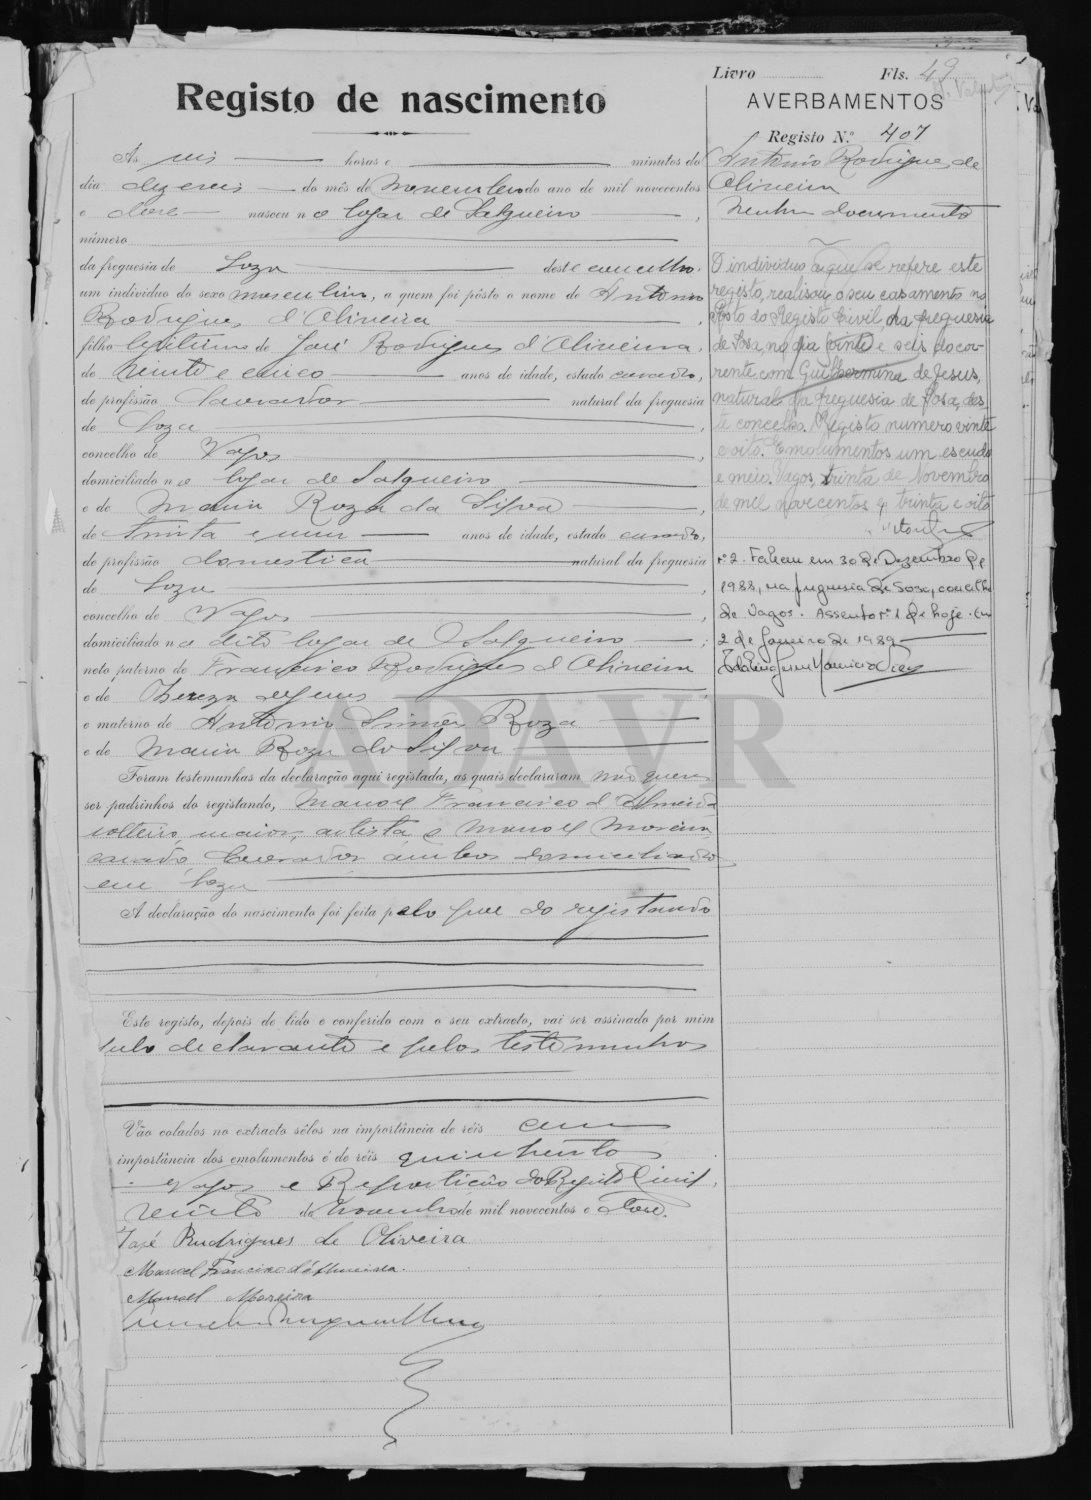 Livro Fls. 49
Registo de nascimento
AVERBAMENTOS
Registo N.º 407
Às seis horas e minutos do
dia dezeseis do mês de Novembro do ano de mil novecentos
e doze nasceu no logar de Salgueiro ,
número
da freguesia de Soza deste concelho.
um indivíduo do sexo masculino, a quem foi pôsto o nome de Antonio
Rodrigues d'Oliveira ,
filho legitimo de José Rodrigues d'Oliveira,
de vinte e cinco anos de idade, estado casado,
de profissão lavrador natural da freguesia
de Soza ,
concelho de Vagos ,
domiciliado no logar de Salgueiro
e de Maria Roza da Silva ,
de trinta e um anos de idade, estado casada,
de profissão domestica natural da freguesia
de Soza ,
concelho de Vagos ,
domiciliado no dito logar de Salgueiro ;
neto paterno de Francisco Rodrigues d'Oliveira
e de Thereza de Jesus ,
e materno de Antonio Simões Roza
e de Maria Roza da Silva
Foram testemunhas da declaração aqui registada, as quais declararam não querer
ser padrinhos do registando, Manoel Francisco d'Almeida
solteiro, maior, artista, e Manoel Moreira
casado, lavrador ambos domiciliados
em Soza
A declaração do nascimento foi feita pelo pae do registando
Este registo, depois de lido e conferido com o seu extracto, vai ser assinado por mim
pelo declarante e pelas testemunhas
Vão colados no extracto sêlos na importância de réis cem
importância dos emolumentos é de réis quinhentos
Vagos e Repartição do Registo Civil,
vinte de Novembro de mil novecentos e doze.
José Rudrigues de Oliveira
Manoel Francisco d'Almeida.
Manoel Moreira
Antonio Rodrigues de
Oliveira
Nenhum documento
O individuo a que se refere este
registo, realisou o seu casamento no
Posto do Registo Civil, da freguesia
de Sosa, no dia vinte e seis do cor-
rente com Guilhermina de Jesus,
natural da freguesia de Sosa, des-
te concelho. Registo numero vinte
e oito. Emolumentos um escudo
e meio. Vagos, trinta de Novembro
de mil novecentos e trinta e oito
nº 2. Faleceu em 30 de Dezembro de
1988, na freguesia de Sosa, concelho
de Vagos. Assento nº 1 de hoje. Em
2 de Janeiro de 1989
ADAVR